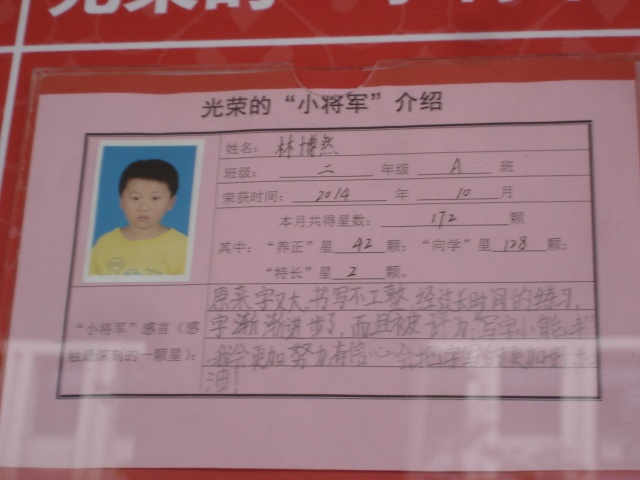 光荣的
光荣的“小将军”介绍
姓名：林博然
班级：二年级A班
荣获时间：2014年10月
本月共得星数：172颗
其中：“养正”星42颗；“向学”星128颗；
“特长”星2颗。
“小将军”感言（感
触最深刻的一颗星）：
原来字又大，书写不工整，经过长时间的练习，
字渐渐进步了，而且被评为“写字小能手”
我会更加努力有信心会把字写的更加好，加
油！